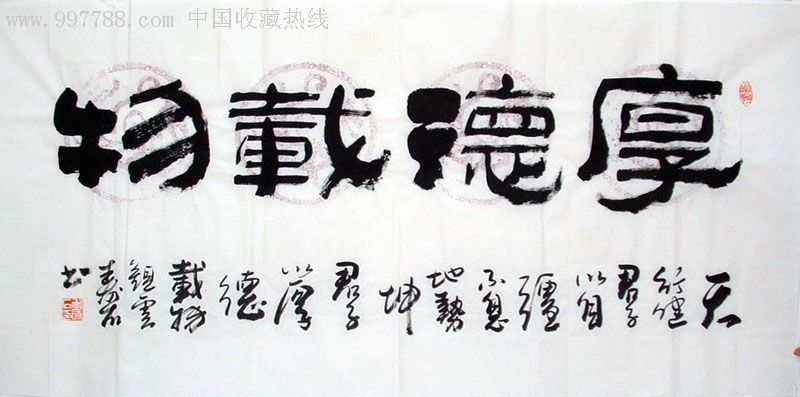 www.997788.com 中国收藏热线
厚德載物
天
行健
君子
以自
彊
不息
地勢
坤
君子
以厚
德
載物
雲
书